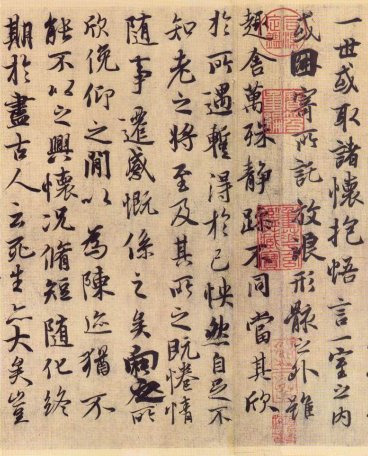 一世或取諸懷抱悟言一室之內
或因寄所託放浪形骸之外雖
趣舍萬殊靜躁不同當其欣
於所遇暫得於己怏然自足不
知老之將至及其所之既惓情
隨事遷感慨係之矣向之所
欣俛仰之閒以為陳迹猶不
能不以之興懷況脩短隨化終
期於盡古人云死生亦大矣豈